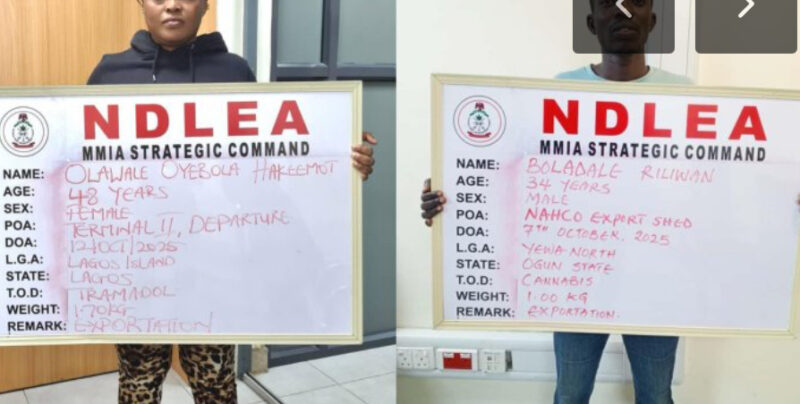 NDLEA
MMIA STRATEGIC COMMAND
NAME: OLAWALE OYEBOLA HAKEEMOT
AGE: 48 YEARS
SEX: FEMALE
POA: TERMINAL II, DEPARTURE
DOA: 12/OCT/2025
L.G.A: LAGOS ISLAND
STATE: LAGOS
T.O.D: TRAMADOL
WEIGHT: 1.70KG
REMARK: EXPORTATION
NDLEA
MMIA STRATEGIC COMMAND
NAME: BOLADALE RILIWAN
AGE: 34 YEARS
SEX: MALE
POA: NAHCO EXPORT SHED
DOA: 7TH OCTOBER, 2025
L.G.A: YEWA NORTH
STATE: OGUN STATE
T.O.D: CANNABIS
WEIGHT: 1.00 KG
REMARK: EXPORTATION.